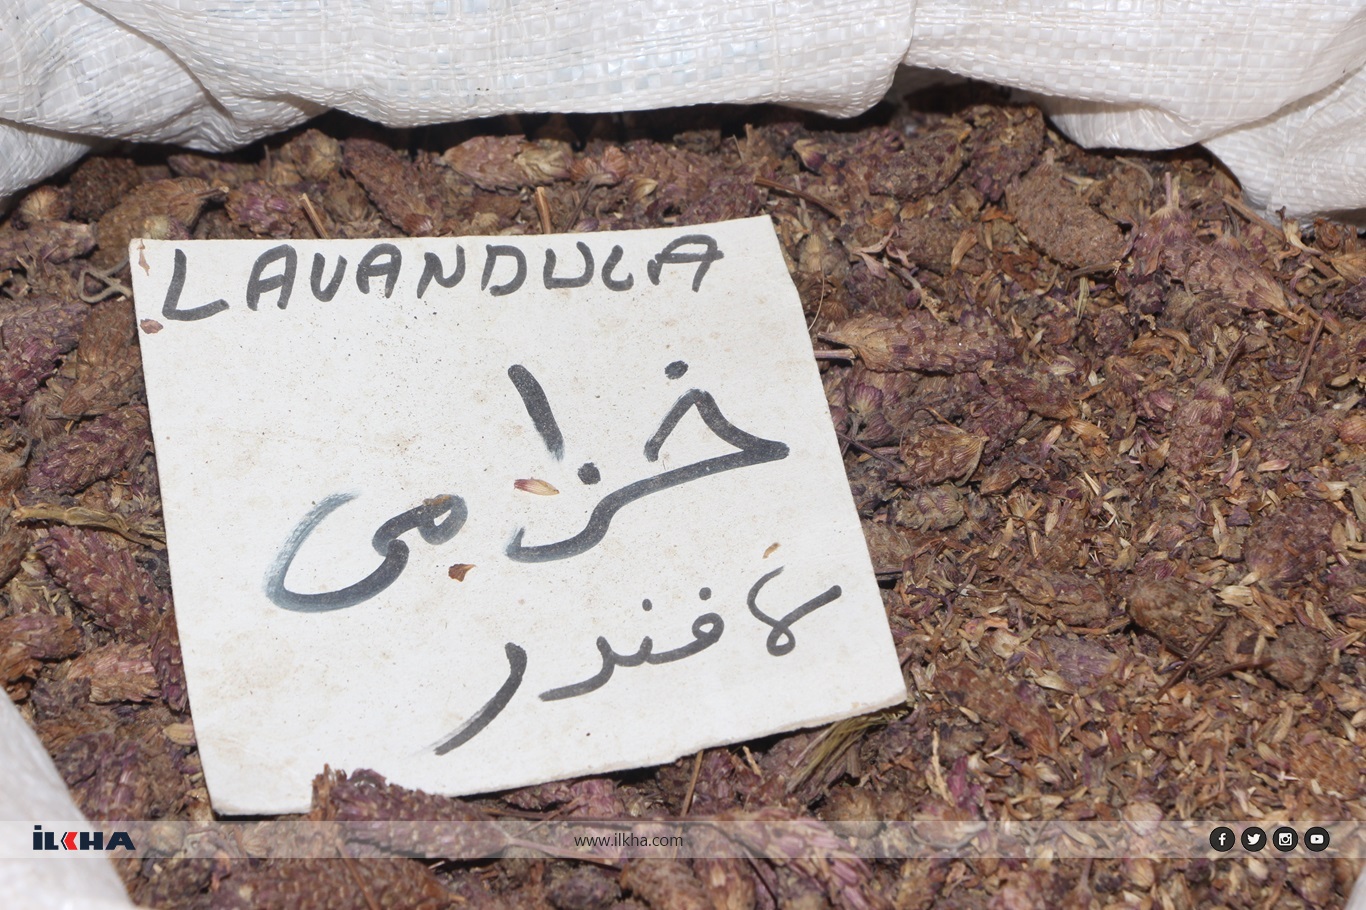 LAVANDULA
خزامى
لافندر
İLKHA
www.ilkha.com